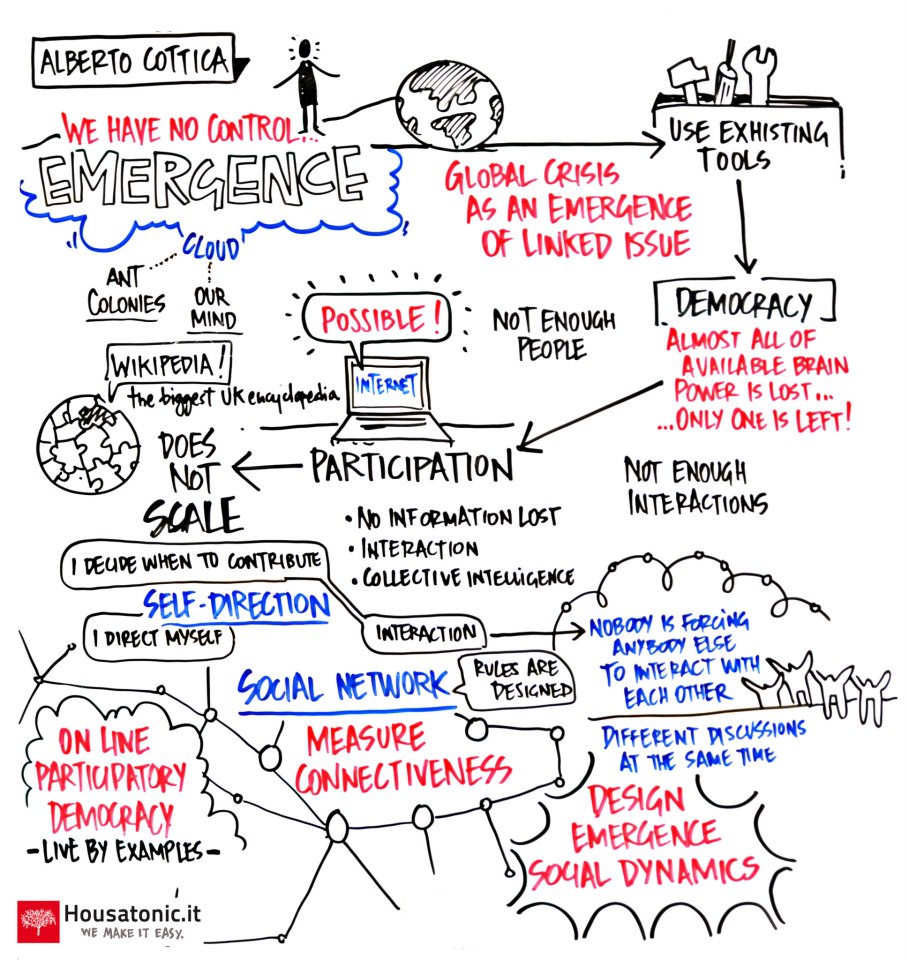 ALBERTO COTTICA
WE HAVE NO CONTROL...
EMERGENCE
CLOUD
ANT
COLONIES
OUR
MIND
GLOBAL CRISIS
AS AN EMERGENCE
OF LINKED ISSUE
USE EXHISTING
TOOLS
DEMOCRACY
ALMOST ALL OF
AVAILABLE BRAIN
POWER IS LOST...
...ONLY ONE IS LEFT!
NOT ENOUGH
PEOPLE
POSSIBLE!
INTERNET
WIKIPEDIA!
the biggest UK encyclopedia
PARTICIPATION
DOES
NOT
SCALE
NOT ENOUGH
INTERACTIONS
• NO INFORMATION LOST
• INTERACTION
• COLLECTIVE INTELLIGENCE
I DECIDE WHEN TO CONTRIBUTE
SELF-DIRECTION
I DIRECT MYSELF
INTERACTION
NOBODY IS FORCING
ANYBODY ELSE
TO INTERACT WITH
EACH OTHER
SOCIAL NETWORK
RULES ARE
DESIGNED
DIFFERENT DISCUSSIONS
AT THE SAME TIME
MEASURE
CONNECTIVENESS
ON LINE
PARTICIPATORY
DEMOCRACY
-LIVE BY EXAMPLES-
DESIGN
EMERGENCE
SOCIAL DYNAMICS
Housatonic.it
WE MAKE IT EASY.